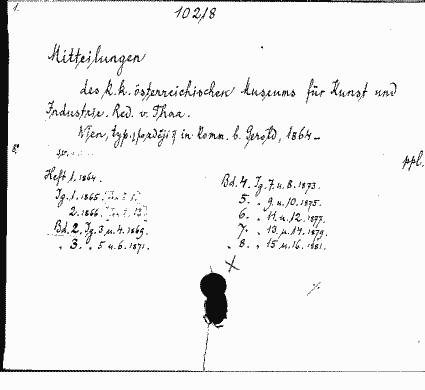 1.
102/8
Mitteilungen
des k.k. österreichischen Museums für Kunst und
Industrie. Red. v. Thaa.
Wien, in Komm. b. Gerold, 1864-
8°
ppl.
Heft 1. 1864.
Jg. 1. 1865.
2. 1866.
Bd. 2. Jg. 3 u. 4. 1869.
" 3. " 5 u. 6. 1871.
Bd. 4. Jg. 7 u. 8. 1873.
5. " 9 u. 10. 1875.
6. " 11 u. 12. 1877.
7. " 13 u. 14. 1879.
" 8. " 15 u. 16. 1881.